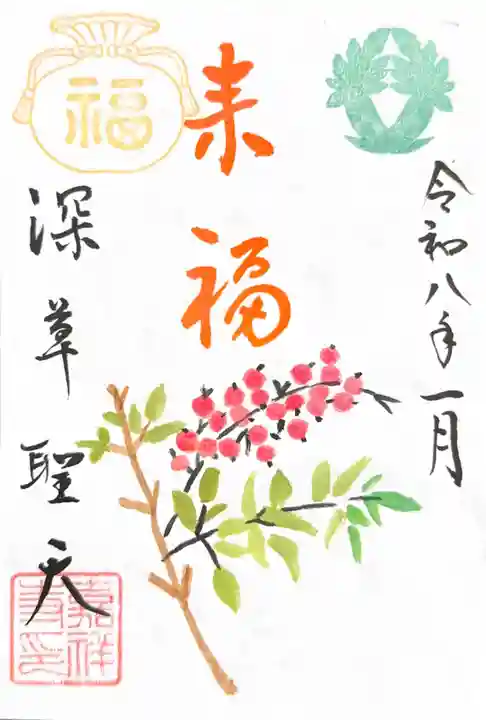 令和八年一月
来福
福
深草聖天
嘉祥寺印